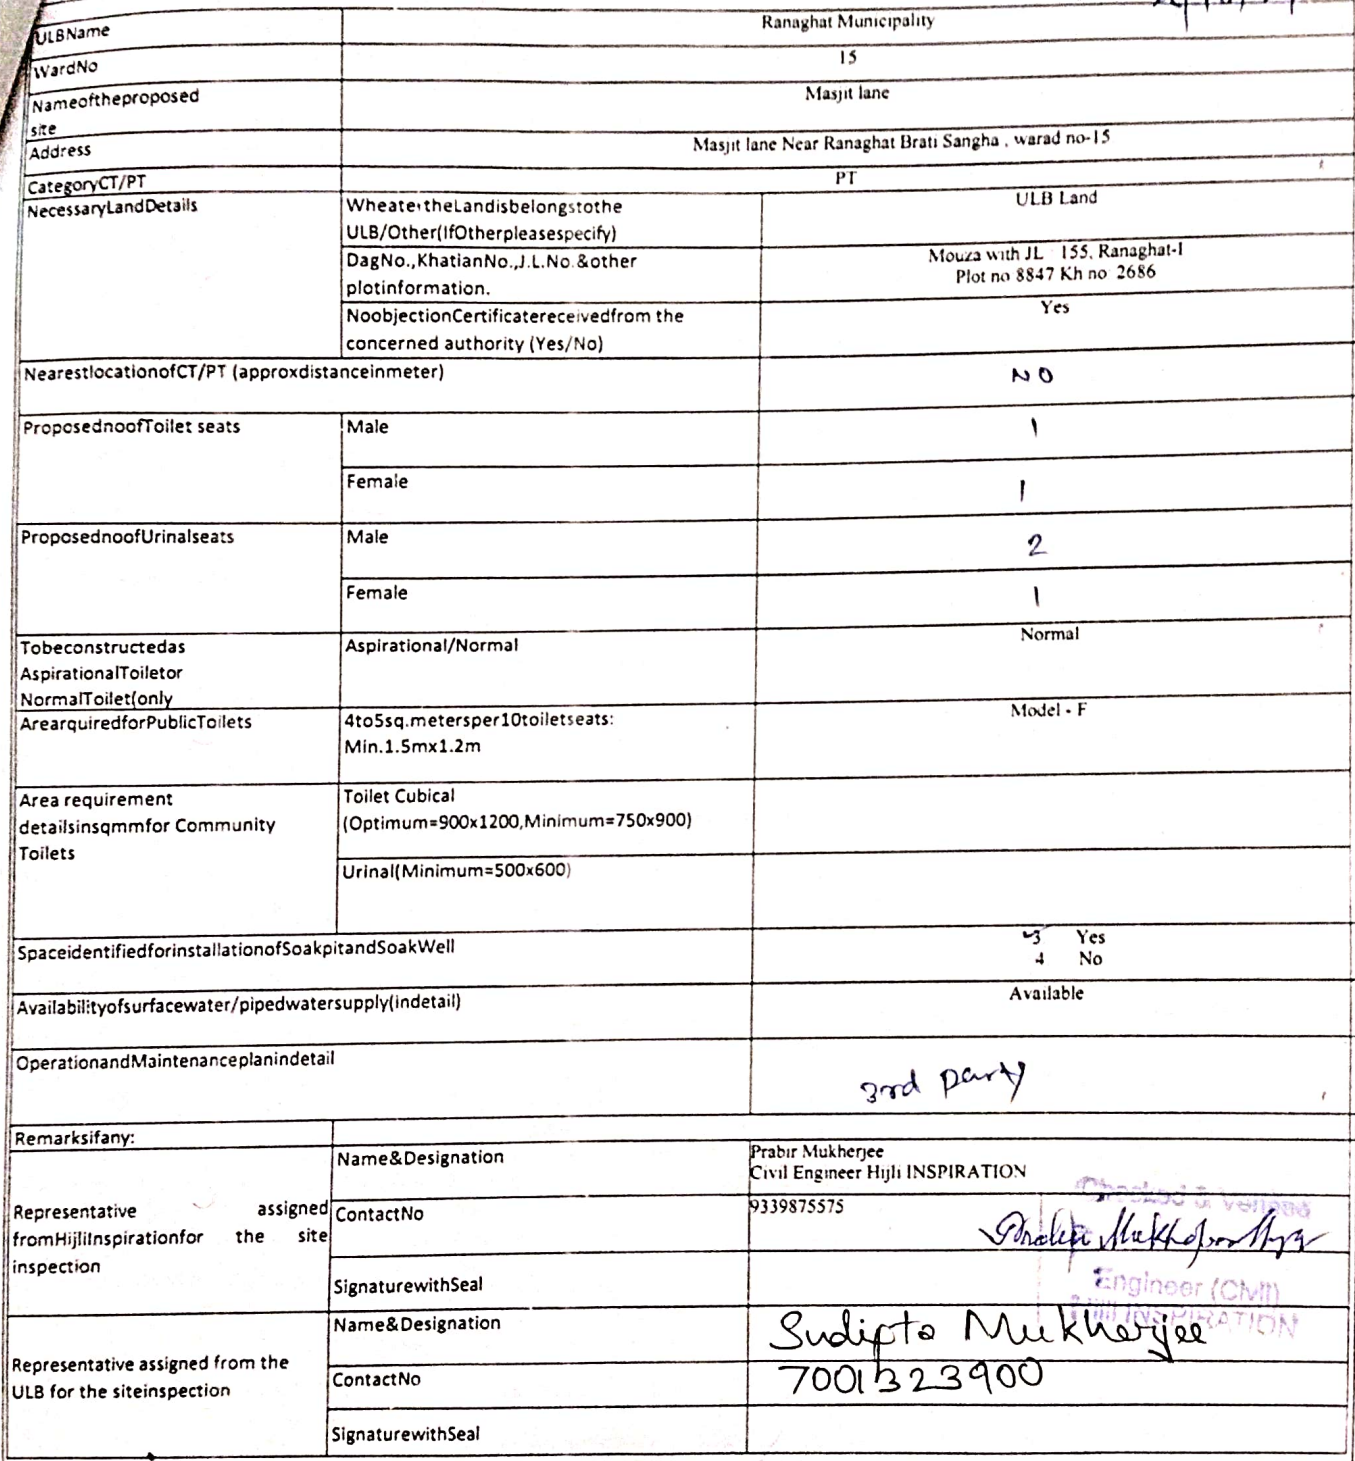 ULBName Ranaghat Municipality
WardNo 15
Nameoftheproposed
site Masjit lane
Address Masjit lane Near Ranaghat Brati Sangha , warad no-15
CategoryCT/PT PT
NecessaryLandDetails WheatertheLandisbelongstothe
ULB/Other(IfOtherpleasespecify) ULB Land
DagNo.,KhatianNo.,J.L.No.&other
plotinformation.
Mouza with JL 155, Ranaghat-I
Plot no 8847 Kh no 2686
NoobjectionCertificatereceivedfrom the
concerned authority (Yes/No) Yes
NearestlocationofCT/PT (approxdistanceinmeter) NO
ProposednoofToilet seats Male 1
Female 1
ProposednoofUrinalseats Male 2
Female 1
Tobeconstructedas
AspirationalToiletor
NormalToilet(only
Aspirational/Normal Normal
ArearquiredforPublicToilets 4to5sq.metersper10toiletseats:
Min.1.5mx1.2m
Model - F
Area requirement
detailsinsqmmfor Community
Toilets
Toilet Cubical
(Optimum=900x1200,Minimum=750x900)
Urinal(Minimum=500x600)
SpaceidentifiedforinstallationofSoakpitandSoakWell 3 Yes
4 No
Availabilityofsurfacewater/pipedwatersupply(indetail) Available
OperationandMaintenanceplanindetail 3rd party
Remarksifany:
Representative assigned
fromHijliInspirationfor the site
inspection
Name&Designation Prabir Mukherjee
Civil Engineer Hijli INSPIRATION
Checked & Verified
ContactNo 9339875575
SignaturewithSeal
Engineer (Civil)
Hijli INSPIRATION
Representative assigned from the
ULB for the siteinspection
Name&Designation Sudipta Mukherjee
ContactNo 7001323900
SignaturewithSeal